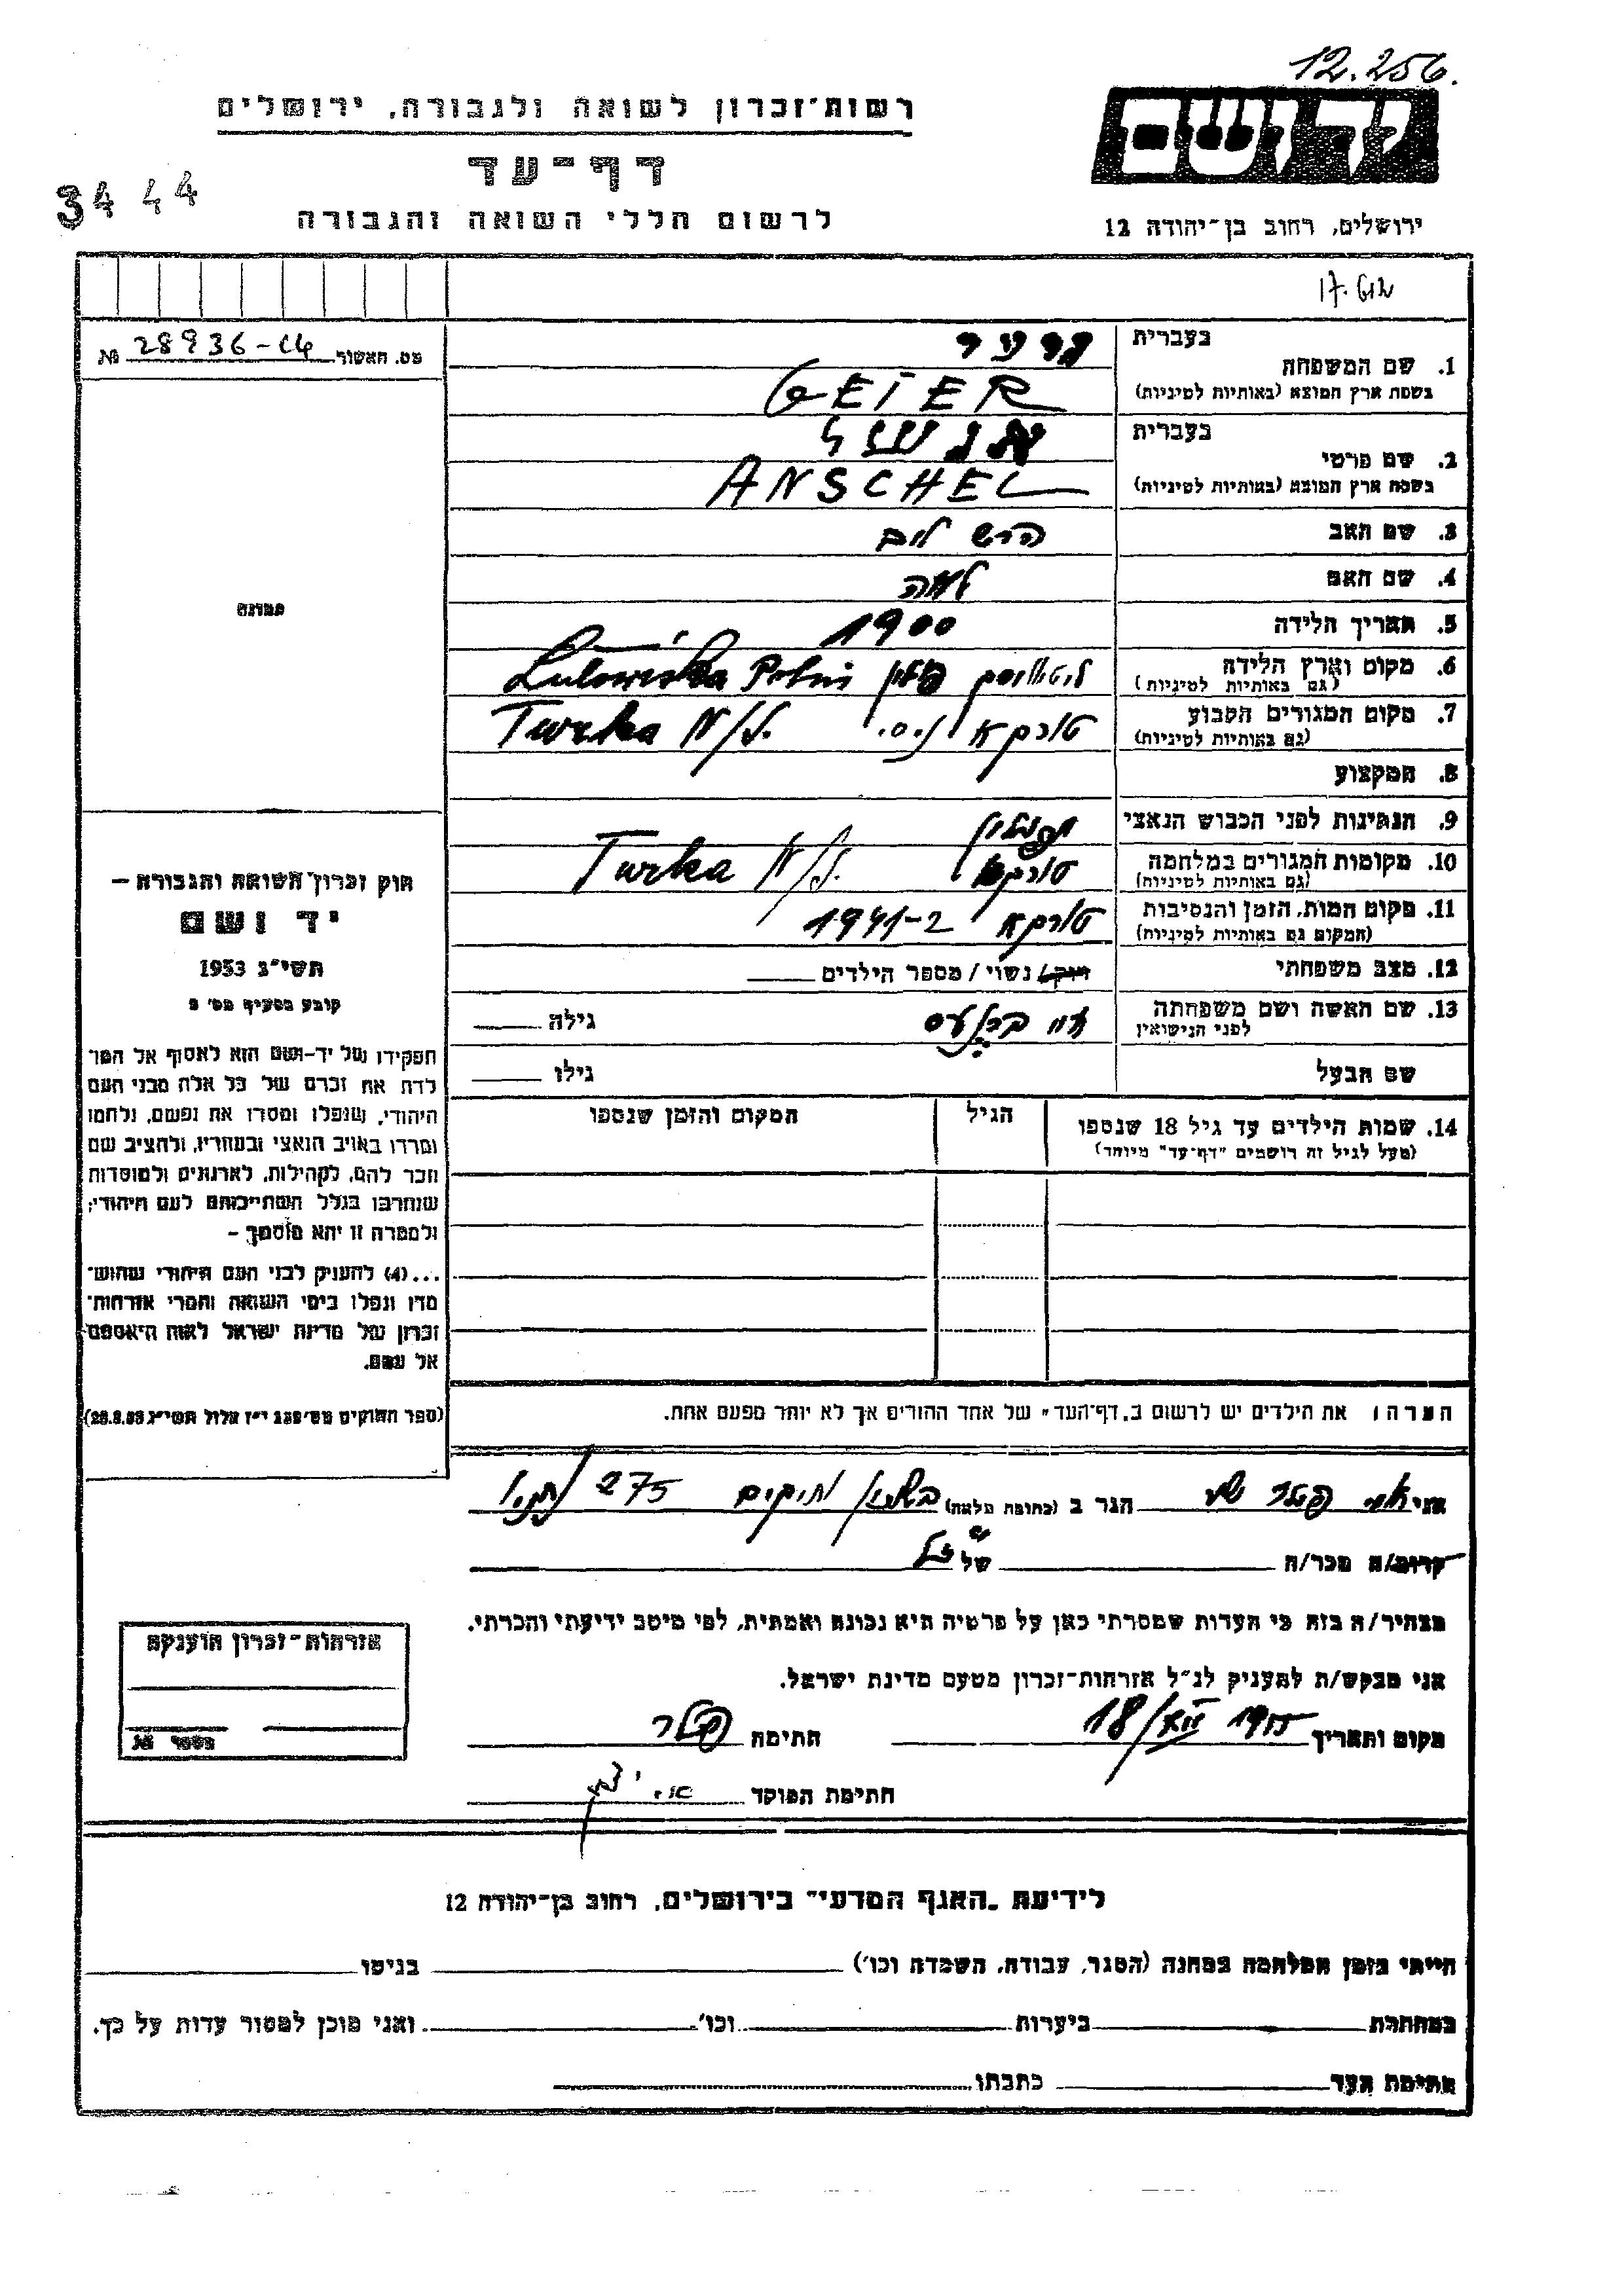 12.256.
רשות־זכרון לשואה ולגבורה, ירושלים
יד ושם
דף־עד
3444
לרשום חללי השואה והגבורה
ירושלים, רחוב בן־יהודה 12
מס. האשור 28936-14 №
בעברית
1. שם המשפחה
בשפת ארץ המוצא (באותיות לטיניות) GEIER
בעברית אנשל
2. שם פרטי
בשפת ארץ המוצא (באותיות לטיניות) ANSCHEL
3. שם האב הרש לוב
4. שם האם לאה
5. תאריך הלידה 1900
6. מקום וארץ הלידה פולין
(גם באותיות לטיניות)
7. מקום המגורים הקבוע טורקא נ.ס. Turka N/
(גם באותיות לטיניות)
8. המקצוע
9. הנתינות לפני הכבוש הנאצי
10. מקומות המגורים במלחמה טורקא Turka N/
(גם באותיות לטיניות)
11. מקום המות, הזמן והנסיבות טורקא 1941-2
(המקום גם באותיות לטיניות)
12. מצב משפחתי רווק/ נשוי / מספר הילדים
13. שם האשה ושם משפחתה
לפני הנישואין
גילה
שם הבעל
גילו
14. שמות הילדים עד גיל 18 שנספו
(מעל לגיל זה רושמים "דף־עד" מיוחד)
הגיל
המקום והזמן שנספו
הערה: את הילדים יש לרשום ב„דף־העד" של אחד ההורים אך לא יותר מפעם אחת.
תמונה
חוק זכרון השואה והגבורה —
יד ושם
תשי"ג 1953
קובע בסעיף מס' 2
תפקידו של יד-ושם הוא לאסוף אל המו־
לדת את זכרם של כל אלה מבני העם
היהודי, שנפלו ומסרו את נפשם, נלחמו
ומרדו באויב הנאצי ובעוזריו, ולהציב שם
וזכר להם, לקהילות, לארגונים ולמוסדות
שנחרבו בגלל השתייכותם לעם היהודי;
ולמטרה זו יהא מוסמך —
...(4) להעניק לבני העם היהודי שהוש־
מדו ונפלו בימי השואה והמרי אזרחות־
זכרון של מדינת ישראל לאות היאספם
אל עמם.
(ספר החוקים מס' 132 י"ז אלול תשי"ג 28.8.53)
אני הגר ב (כתובת מלאה) 275
קרוב/ה מכר/ה של
מצהיר/ה בזה כי העדות שמסרתי כאן על פרטיה היא נכונה ואמתית, לפי מיטב ידיעתי והכרתי.
אני מבקש/ת להעניק לנ"ל אזרחות־זכרון מטעם מדינת ישראל.
מקום ותאריך 18/XII 1955 חתימה
חתימת הפוקד
אזרחות־זכרון הוענקה
מספר №
לידיעת „האגף המדעי" בירושלים, רחוב בן־יהודה 12
הייתי בזמן המלחמה במחנה (הסגר, עבודה, השמדה וכו') בגיטו
במחתרת ביערות וכו' ואני מוכן למסור עדות על כך.
חתימת העד כתבתו